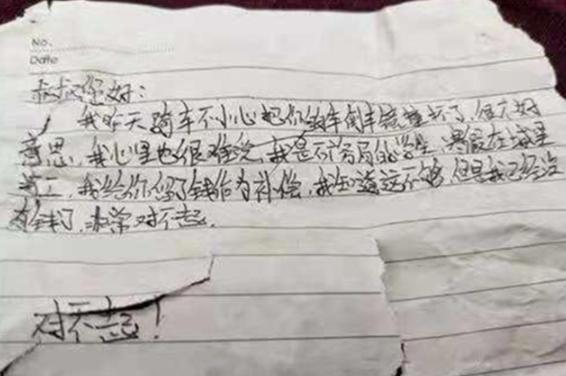 No.
Date
叔叔您好:
我昨天骑车不小心把你的车倒车镜撞坏了,很不好
意思,我心里也很难受,我是不的学生,暑假在城里
打工,我给你留了钱作为补偿,我知道这不够,但是我已经没
有钱了,非常对不起。
对不起!